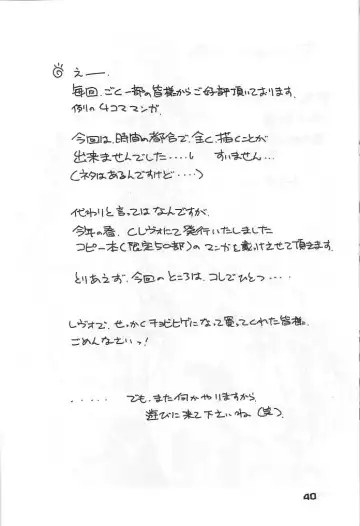 えー、
毎回、ごく一部の皆様からご好評頂いております、
例の4コママンガ、
今回は、時間の都合で、全く描くことが
出来ませんでした・・・・。 すいません…
（ネタはあるんですけど・・・・）
代わりと言ってはなんですが、
今年の春、Cレヴォにて発行いたしました
コピー本（限定50部）のマンガを載けさせて頂きます。
とりあえず、今回のところは、コレでひとつ・・・・
レヴォで、せっかくチョビヒゲになって買ってくれた皆様。
ごめんなさいっ！
・・・・・ でも、また何かやりますから
遊びに来て下さいね（笑）
40